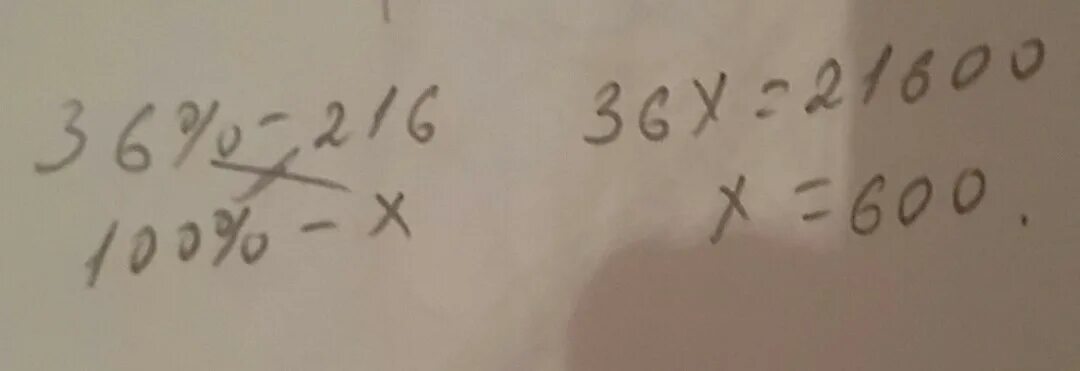 36% - 216
100% - x
36x = 21600
x = 600.